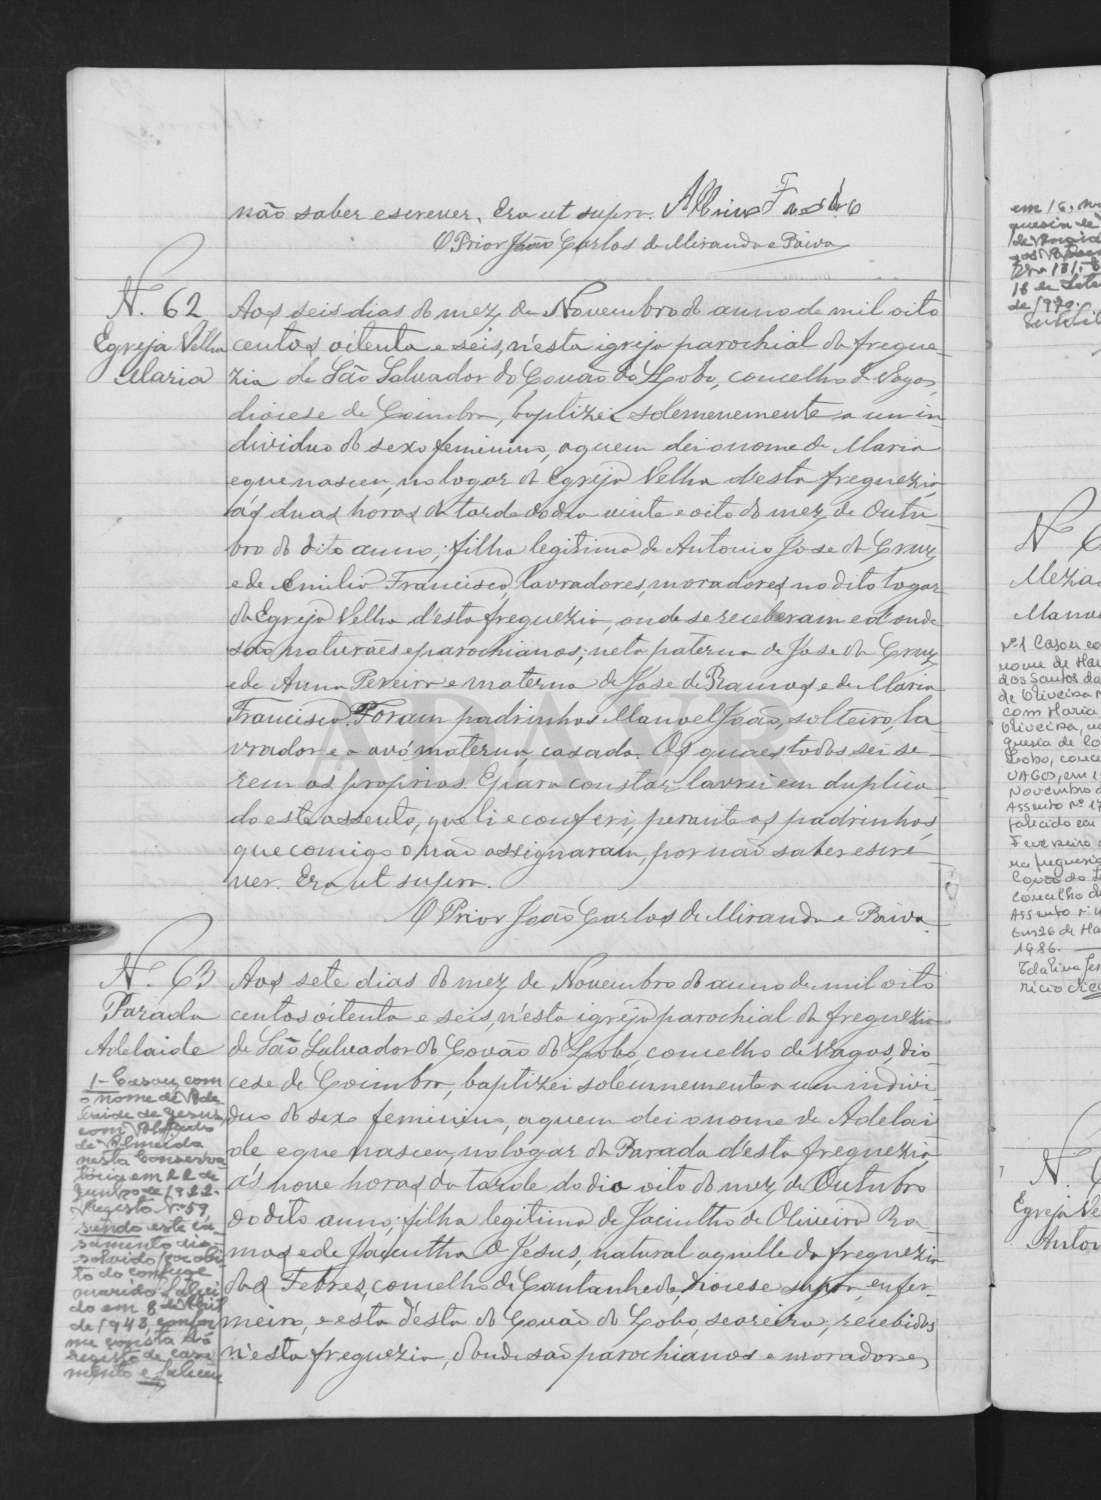 não saber escrever. Era ut supra. Albino
O Prior João Carlos de Miranda e Paiva
N. 62
Egreja Velha
Maria
Aos seis dias do mez de Novembro do anno de mil oito
centos oitenta e seis, n'esta igreja parochial da fregue-
zia de São Salvador do Covão do Lobo, concelho de Vagos,
diocese de Coimbra, baptizei solemnemente a um in-
dividuo do sexo feminino, a quem dei o nome de Maria
e que nasceu, no logar da Egreja Velha d'esta freguezia,
ás duas horas da tarde do dia vinte e oito do mez de Outu-
bro do dito anno; filha legitima de Antonio Jose da Cruz
e de Emilia Francisca, lavradores, moradores no dito logar
da Egreja Velha d'esta freguezia, onde se receberam e d'onde
são naturaes e parochianos; neta paterna de Jose da Cruz
e de Anna Pereira e materna de Jose de Ramos e de Maria
Francisca. Foram padrinhos Manoel João, solteiro, la
vrador e a avó materna, casada. Os quaes todos sei se-
rem os proprios. E para constar lavrei em duplica-
do este assento, que li e conferi, perante os padrinhos,
que comigo o não assignaram, por não saber escre-
ver. Era ut supra.
O Prior João Carlos de Miranda e Paiva.
N. 63
Parada
Adelaide
Aos sete dias do mez de Novembro do anno de mil oito
centos oitenta e seis, n'esta igreja parochial da freguezia
de São Salvador do Covão do Lobo, concelho de Vagos, dio
cese de Coimbra, baptizei solemnemente a um indivi
duo do sexo feminino, a quem dei o nome de Adelai
de e que nasceu, no logar da Parada d'esta freguezia,
ás nove horas da tarde do dia oito do mez de Outubro
do dito anno; filha legitima de Jacintho de Oliveira Ra-
mos e de Jacintha de Jesus, natural aquelle da freguezia
das Febres, concelho de Cantanhede, diocese supra, enfer-
meiro, e esta d'esta do Covão do Lobo, seareira, recebidos
n'esta freguezia, d'onde são parochianos e moradores
1- Casou com
o nome de Ade
laide de Jesus,
com
de Almeida
nesta Conserva
tória em 22 de
Junho de 1922.
Registo Nº 59,
sendo este ca-
samento dis-
solvido por obi
to do conjuge
marido faleci
do em 8 de Abril
de 1948, confor
me consta do
registo de casa
mento
ADAVR
em 16. no
de 1979.
N.
Manoe
Nº1 Casou co
nome de Mar
dos Santos da
de Oliveira
com Maria
Oliveira, na
guesia de Co
Lobo, conce
VAGOS, em
Novembro d
Assento Nº 17
falecido em
Fevereiro
na freguesia
Covão do L
concelho de
Assento nº
Em 26 de Ma
1986.
N.
Egreja Ve
Anton